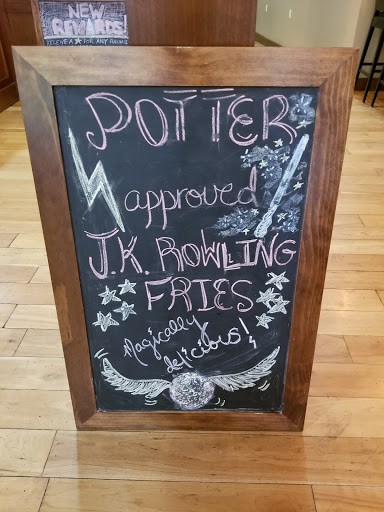 NEW
REWARDS!
RECEIVE A ★ FOR ANY
POTTER
approved
J.K. ROWLING
FRIES
Magically
delicious!